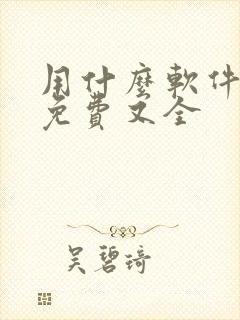 用什麼軟件
免費又全
吳碧琦